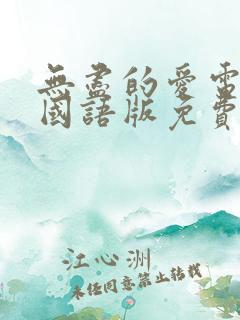 無盡的愛電
國語版免費
江心洲
未经同意禁止转载